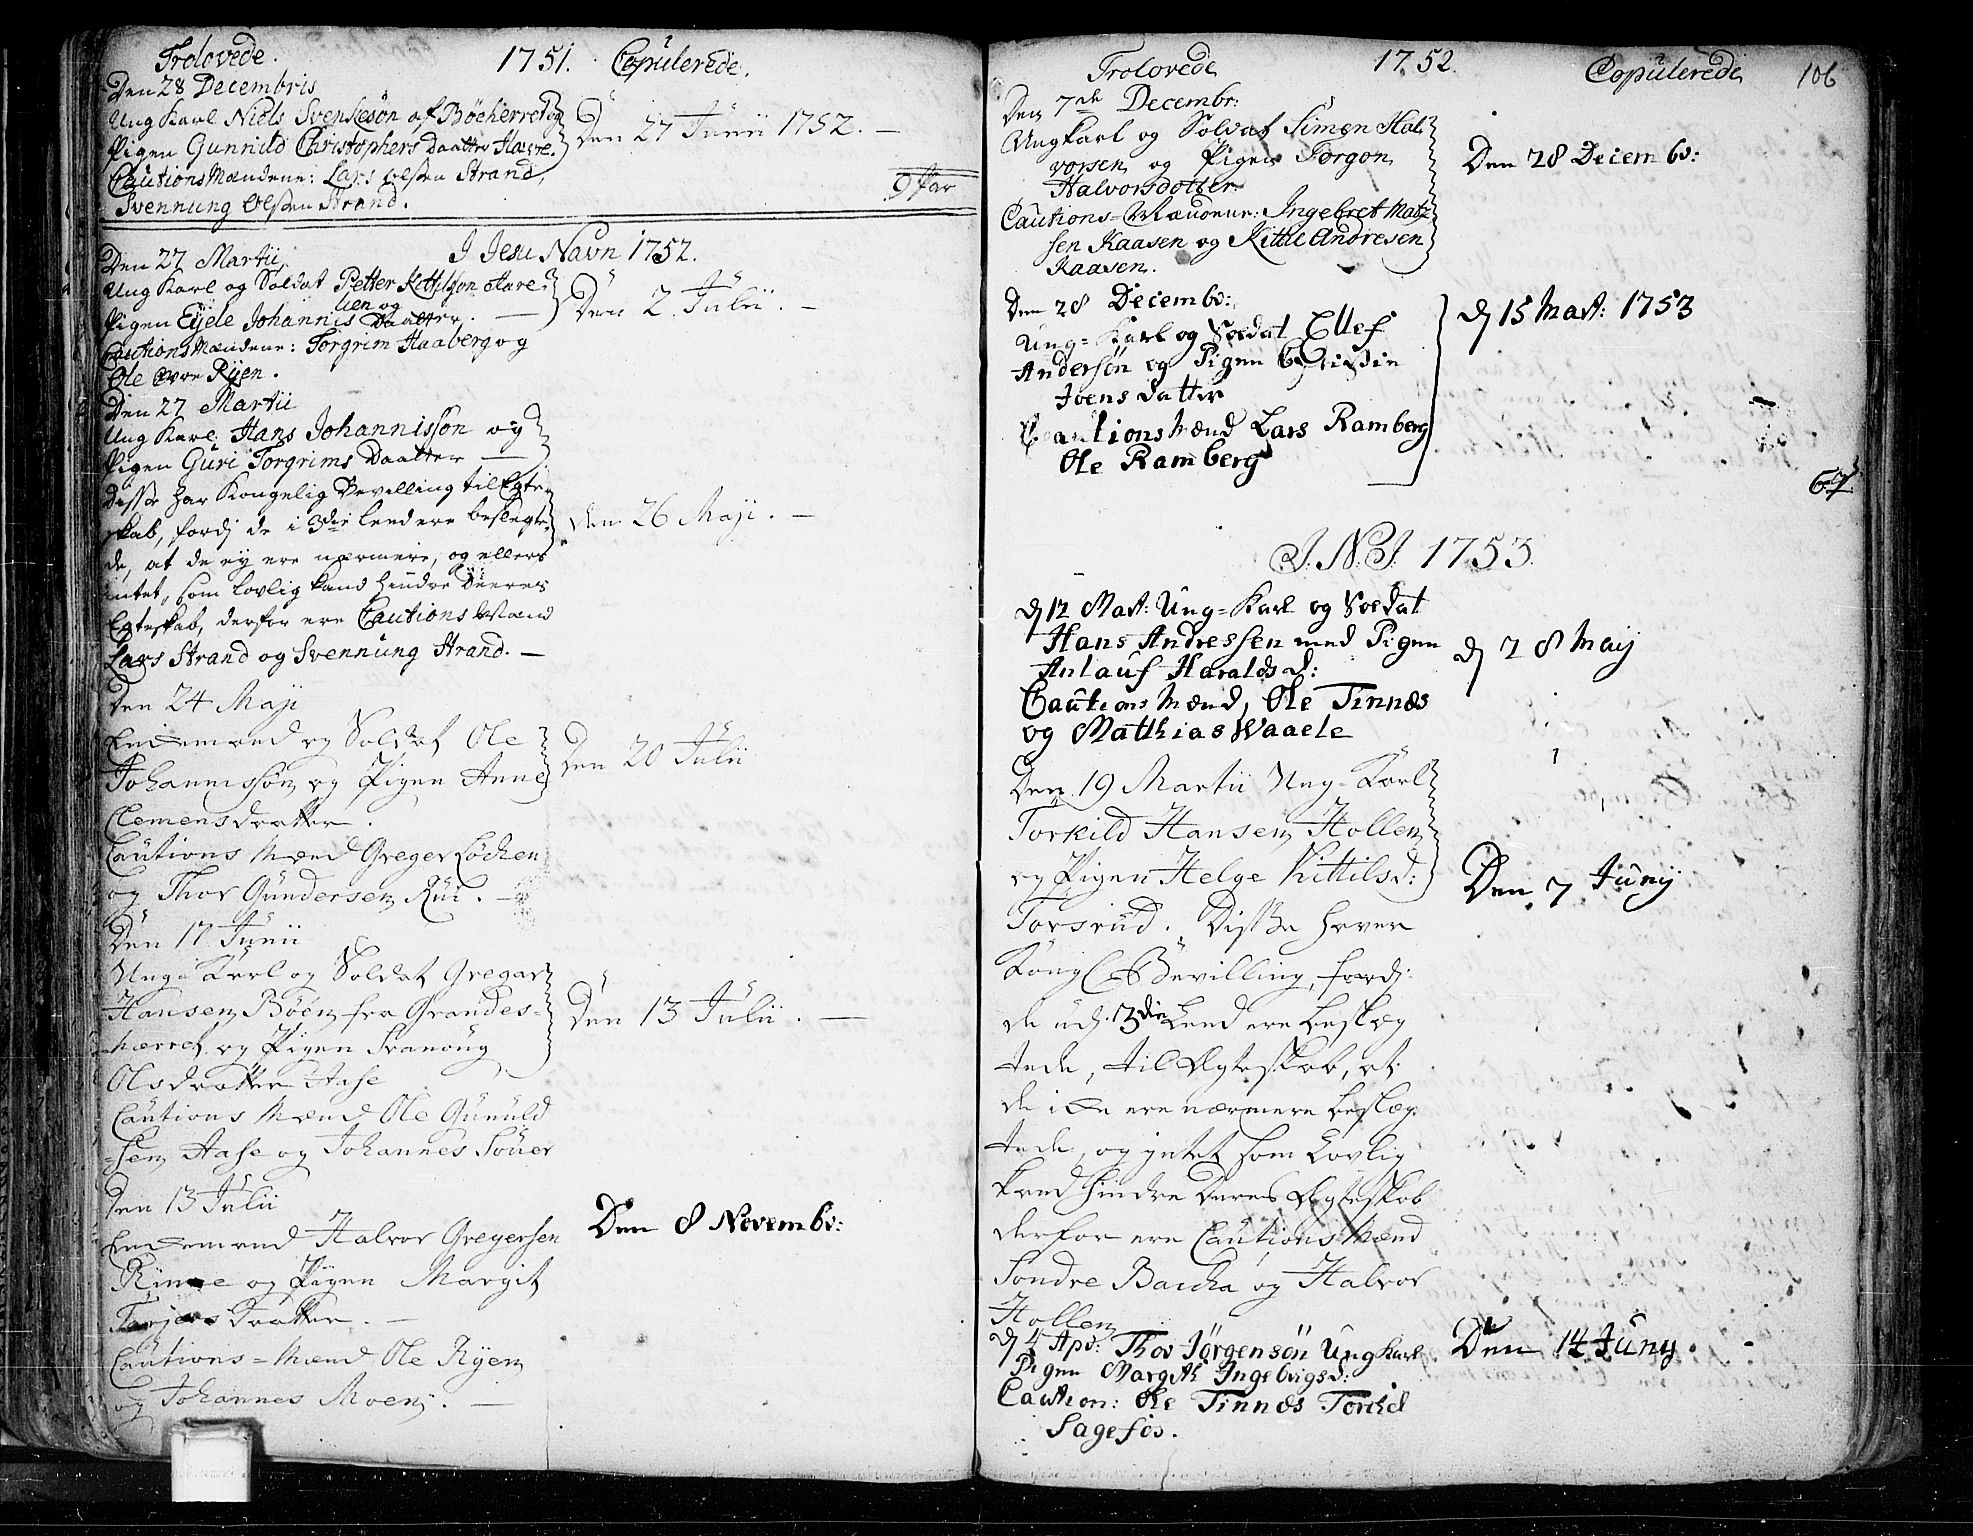 Trolovede. 1751. Copulerede.
Den 28 Decembris
Ung Karl Niels Svenkesøn af Bøcherret og
Pigen Gunnild Christophers Daatter Haavre.
Cautions Mændene: Lars Olsen Strand,
Svennung Olsen Strand.
Den 27 Junii 1752. —
9 Par
I Jesu Navn 1752.
Den 27 Martii
Ung Karl og Soldat Petter Kittilsøn Hare-
lien og
Pigen Eÿele Johannis Daatter. —
Cautions Mændene: Torgrim Haaberg og
Ole Øvre Rÿen.
Den 2 Julii. —
Den 27 Martii
Ung Karl Hans Johannissøn og
Pigen Guri Torgrims Daatter —
Disse har Kongelig Bevilling til Egte-
skab, fordj de i 3die Leed ere beslegte-
de, at de ey ere nærmere, og ellers
intet, som lovlig kand hindre Deeres
Egteskab, derfor ere Cautions Mænd
Lars Strand og Svennung Strand. —
Den 26 Maji. —
Den 24 Maji
Enckemand og Soldat Ole
Johannissøn og Pigen Anne
Clemensdaatter.
Cautions Mænd Greger Løchen
og Thor Gundersen Rui. —
Den 20 Julii
Den 17 Junii
Ung Karl og Soldat Gregar
Hansen Bøen fra Grandes-
hærret og Pigen Svanoug
Olsdaatter Aase
Cautions Mænd Ole Gunuld
sen Aase og Johannes Souer
Den 13 Julii. —
Den 13 Julii
Enckemand Halvor Gregersen
Rinde og Pigen Margit
Tarjers Daatter. —
Cautions-Mænd Ole Rÿen
og Johannes Moen. —
Den 8 Novembr:
Trolovede 1752. Copulerede 106
Den 7de Decembr:
Ungkarl og Soldat Simen Hal
vorsen og Pigen Torgon
Halvorsdotter.
Cautions-Mændene: Ingebret Mat-
sen Kaasen og Kittil Andresen
Kaasen.
Den 28 Decembr:
Den 28 Decembr:
Ung-Karl og Soldat Ellef
Andersøn og Pigen Christin
Joens datter
Cautions Mænd Lars Ramberg
Ole Ramberg
d 15 Mart: 1753
I. N. J. 1753.
d 12 Mart: Ung-Karl og Soldat
Hans Andressen med Pigen
Anlauf Haralds d:
Cautions Mænd, Ole Tinnæs
og Matthias Waaele
d 28 Maij
Den 19 Martii Ung-Karl
Torkild Hansen Hollen
og Pigen Helge Kittilsd:
Torsrud. Disse hever
Kongl Bevilling, fordj
de udj 3die Leed ere beslæg
tede, til Ægteskab, at
de icke ere nærmere beslæg
tede, og jntet som Lovlig
kand hindre Deres Ægteskab
derfor ere Cautions Mænd
Sondre Baccha og Halvor
Hollen
Den 7 Junij
d 4 Apr: Thor Jørgensøn Ungkarl
Pigen Margith Ingebrigsd:
Caution: Ole Tinnæs Torkild
Sagefos.
Den 14 Junij.